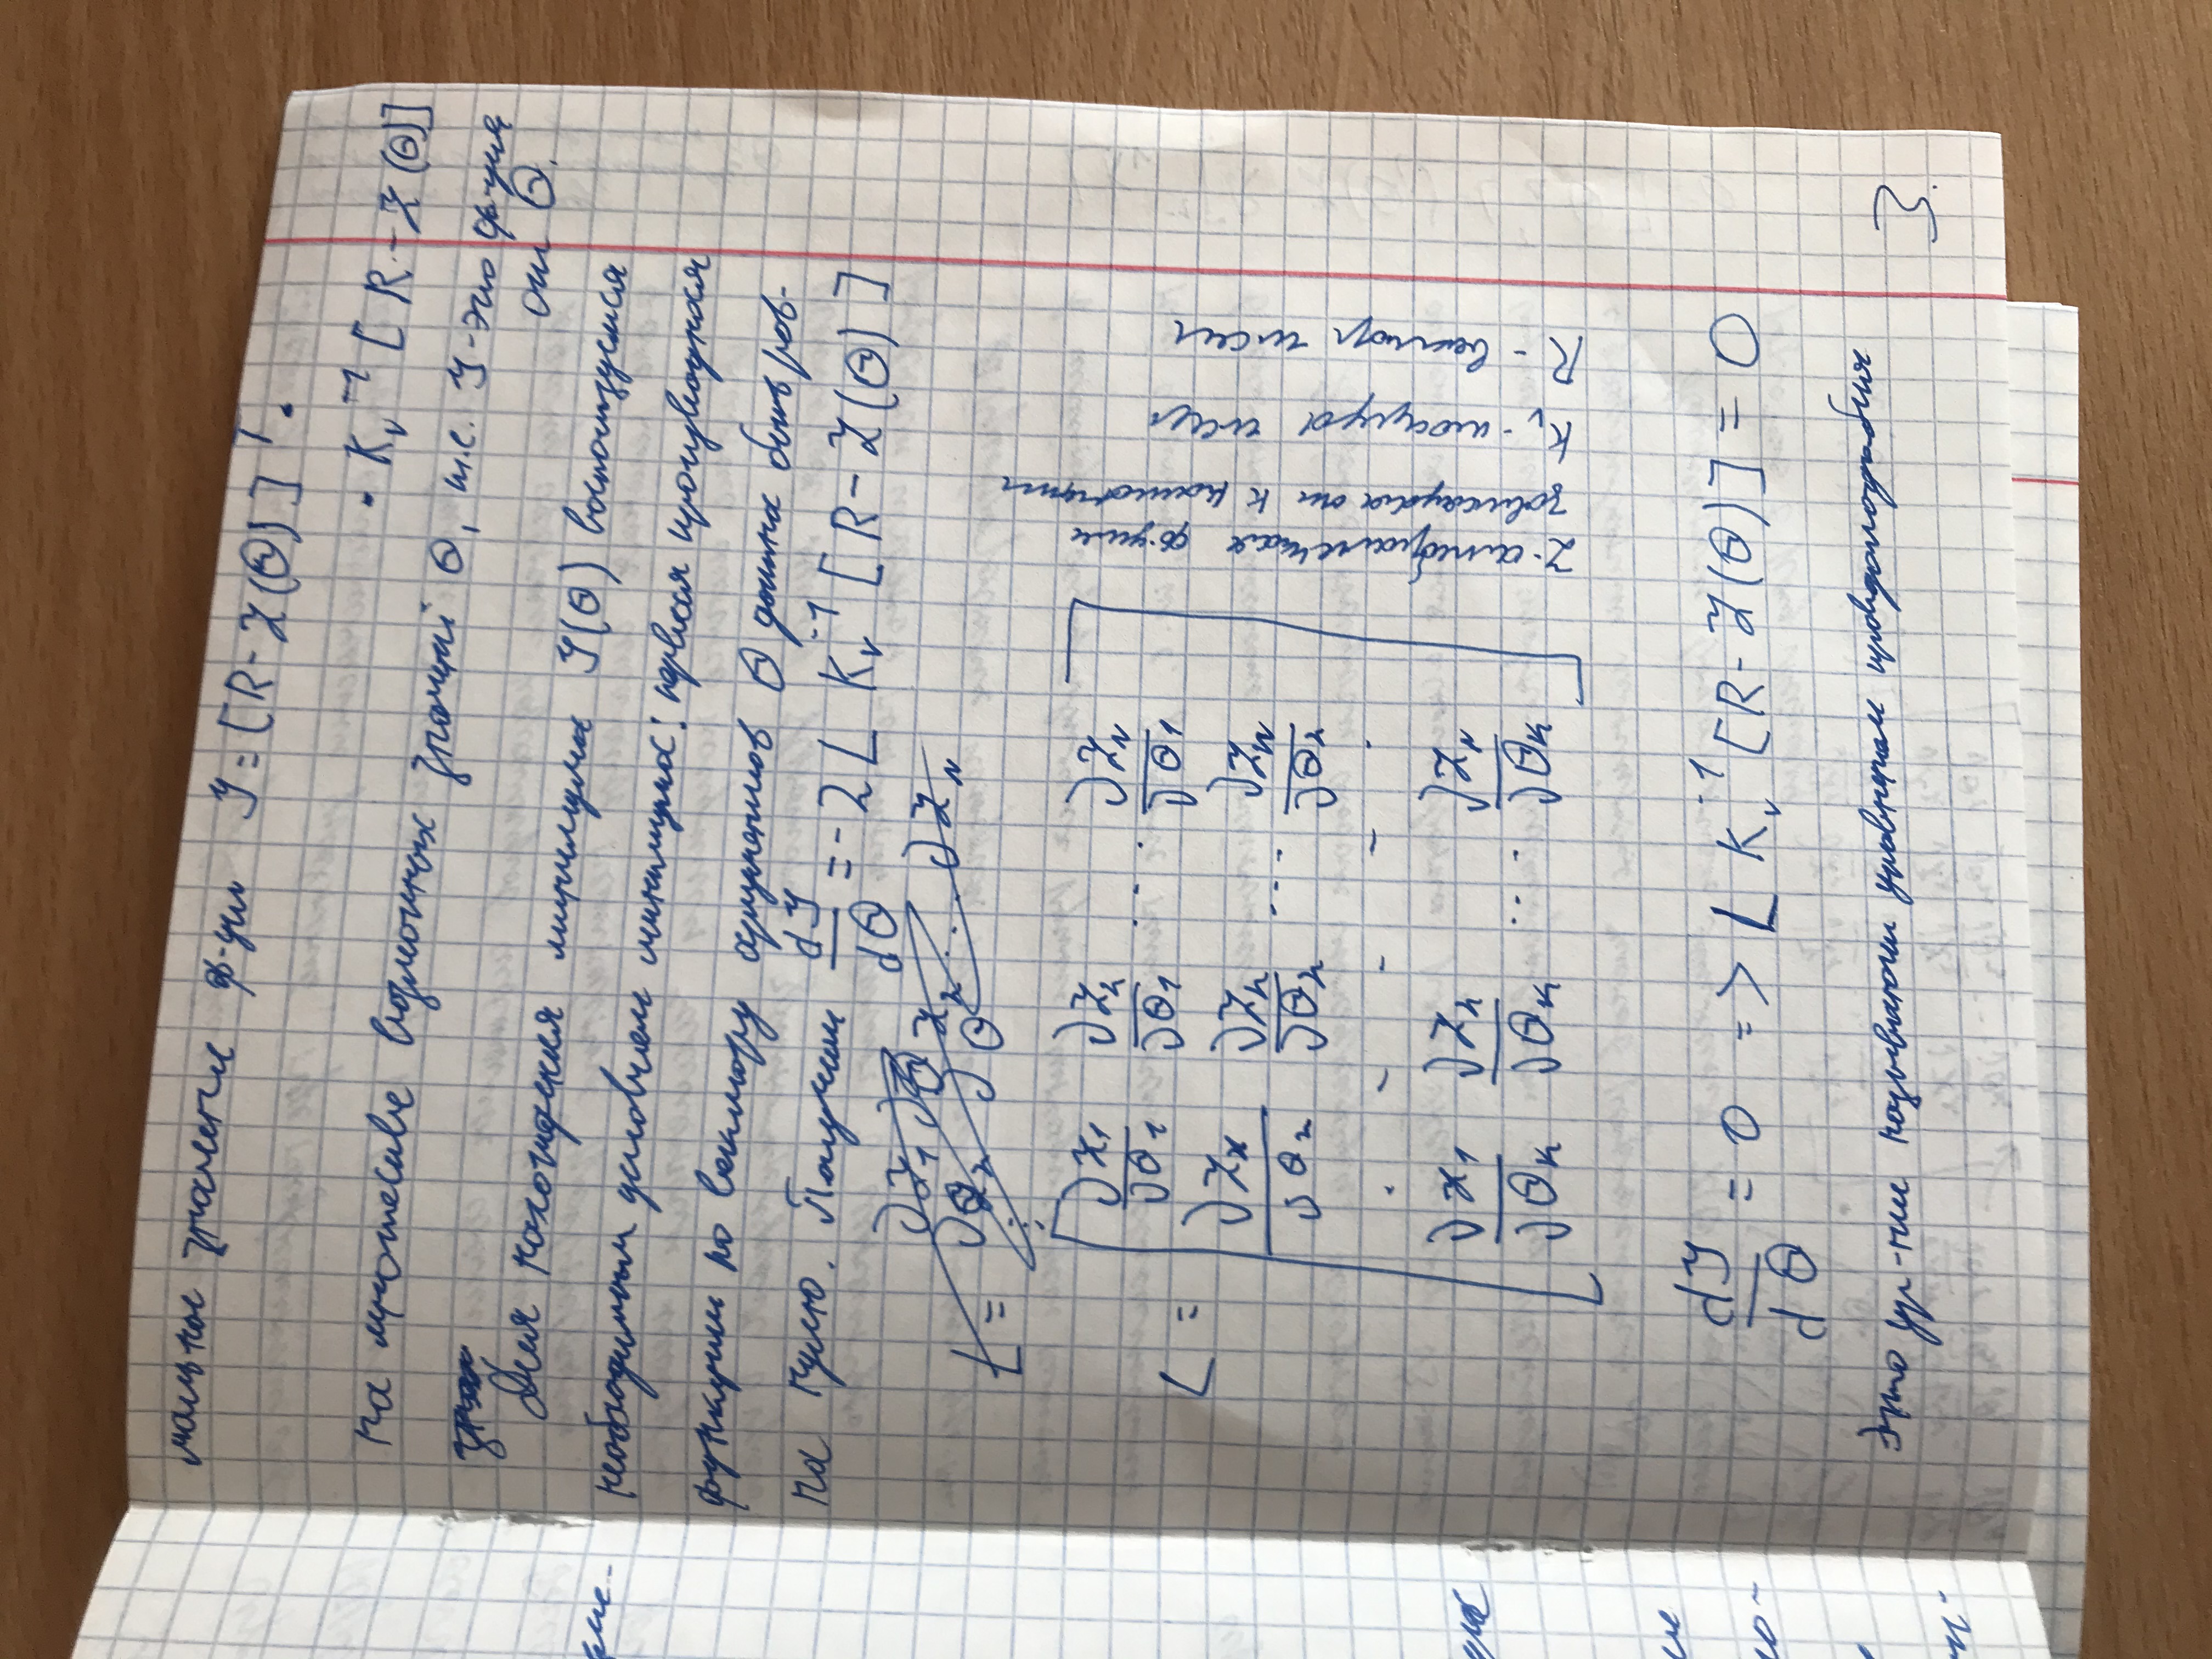 мальное значение ф-ции Y = [R - Z(Θ)]ᵀ ·
· Kᵥ⁻¹ [R - Z(Θ)]
на множестве возможных значений Θ, т.е. Y - это ф-ция
от Θ.
Для нахождения минимума Y(Θ) воспользуемся
необходимым условием минимума: первая производная
функции по вектору аргументов Θ должна быть рав-
на нулю. Получим dY/dΘ = -2 L Kᵥ⁻¹ [R - Z(Θ)]
L =
L = [ ∂Z₁/∂Θ₁ ∂Z₂/∂Θ₁ ... ∂Z_N/∂Θ₁
∂Z/∂Θ₂ ∂Z₂/∂Θ₂ ... ∂Z_N/∂Θ₂
. - - - .
∂Z₁/∂Θ_K ∂Z₂/∂Θ_K ... ∂Z_N/∂Θ_K ]
Z - ф-ция
Kᵥ - чисел
R - вектор чисел
dY/dΘ = 0 => L Kᵥ⁻¹ [R - Z(Θ)] = 0
Это ур-ние называют уравнением правдоподобия
3.